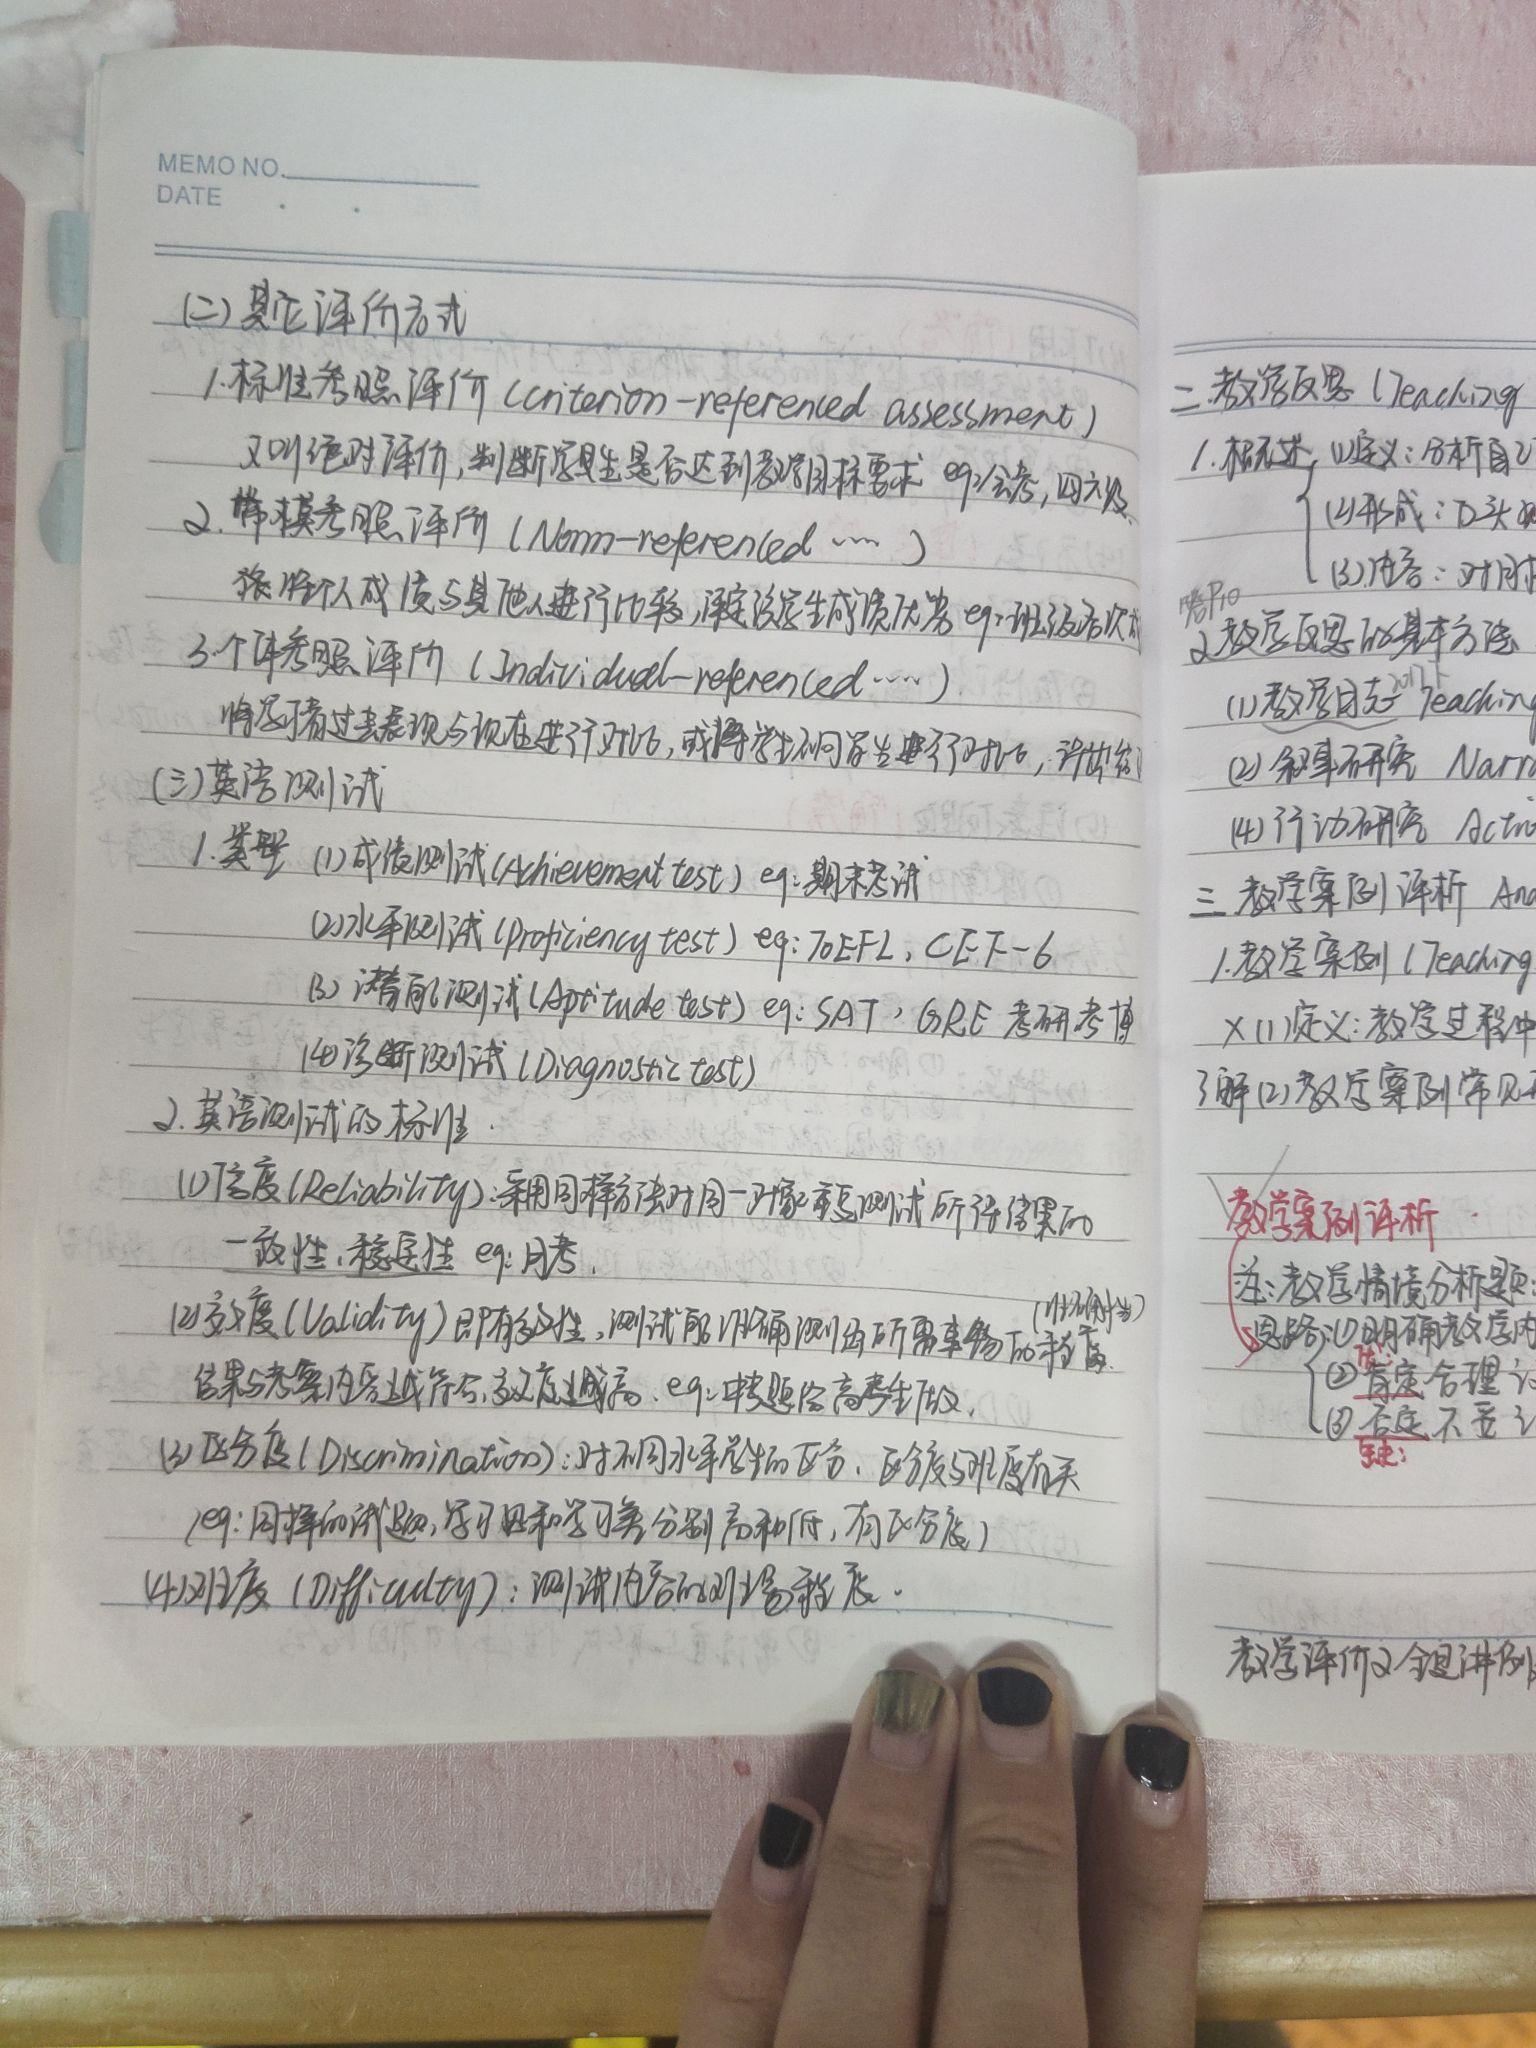 MEMO NO.
DATE
(二)其它评价方式
1.标准参照评价(criterion-referenced assessment)
又叫绝对评价,判断学生是否达到教学目标要求 eg:会考,四六级
2.常模参照评价(Norm-referenced ……)
将个人成绩与其他人进行比较,评定该学生成绩优劣 eg:班级名次
3.个体参照评价(Individual-referenced……)
将学习者过去表现与现在进行对比,或将学生和同学生进行对比,
(三)英语测试
1.类型 (1)成绩测试(Achievement test) eg:期末考试
(2)水平测试(Proficiency test) eg:TOEFL, CET-6
(3)潜能测试(Aptitude test) eg:SAT,GRE 考研考博
(4)诊断测试(Diagnostic test)
2.英语测试的标准.
(1)信度(Reliability):采用同样方法对同一对象重复测试所得结果的
一致性,稳定性 eg:月考.
(2)效度(Validity)即有效性,测试能准确测出所需事物的程度.
结果与考察内容越符合,效度越高. eg:中考题给高考生做.
(3)区分度(Discrimination):对不同水平学生的区分.区分度与难度有关
(eg:同样的试题,学习好和学习差分别高和低,有区分度)
(4)难度(Difficulty):测试内容的难易程度.
二.教学反思(Teaching
1.概述 (1)定义:分析自
(2)形成:
(3)内容:对
P10
2.教学反思的基本方法
(1)教学日志 Teaching
(2)叙事研究 Narra
(4)行动研究 Actio
三.教学案例评析 Ana
1.教学案例(Teaching
X(1)定义:教学过程中
了解(2)教学案例常见
教学案例评析.
注:教学情境分析题:
思路:(1)明确教学内
优:
②肯定合理
③否定不妥
缺:
教学评价